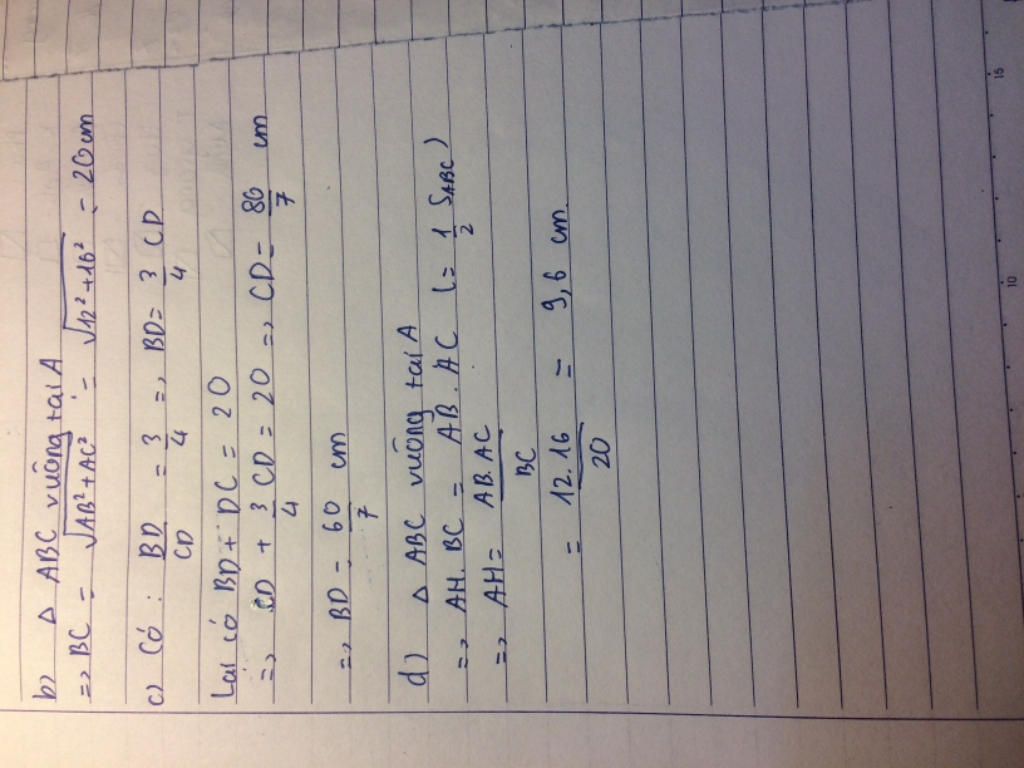 b) Δ ABC vuông tại A
=> BC = √AB²+AC² = √12²+16² = 20cm
c) Có : BD/CD = 3/4 => BD = 3/4 CD
Lại có BD + DC = 20
=> CD + 3/4 CD = 20 => CD = 80/7 cm
=> BD = 60/7 cm
d) Δ ABC vuông tại A
=> AH. BC = AB . AC (= 1/2 SABC)
=> AH = AB.AC/BC
= 12.16/20 = 9,6 cm.
10
15